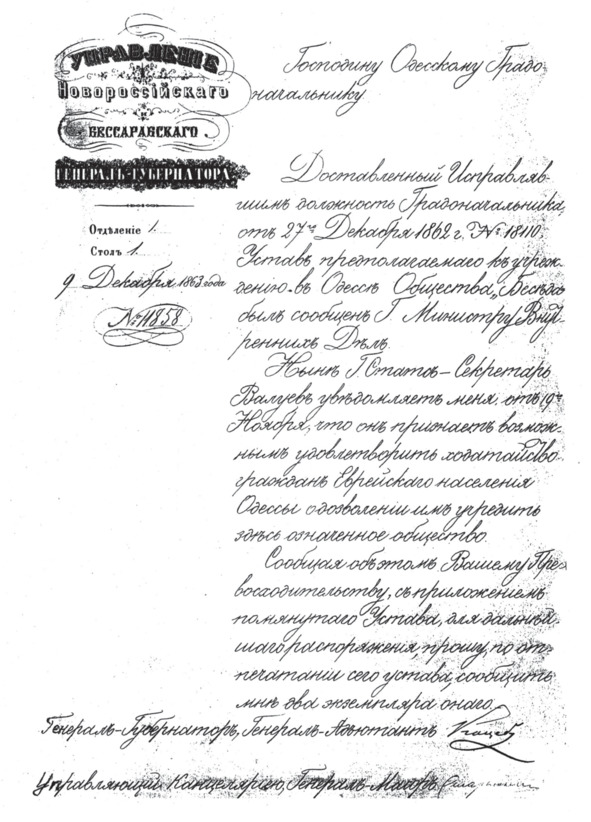 УПРАВЛЕНІЕ
Новороссійскаго
и
БЕССАРАБСКАГО
ГЕНЕРАЛЪ-ГУБЕРНАТОРА
Отдѣленіе 1.
Столъ 1.
9 Декабря 1863 года
№ 11858
Господину Одесскому Градо
начальнику
Доставленный Исправляв-
шимъ должность Градоначальника,
отъ 27го Декабря 1862 г. № 18110
Уставъ предполагаемаго къ учреж-
дению въ Одессѣ Общества „Бесѣда
былъ сообщенъ Г. Министру Внут-
реннихъ Дѣлъ.
Нынѣ Г Статсъ-Секретарь
Валуевъ увѣдомляетъ меня, отъ 19го
Ноября, что онъ признаетъ возмож-
нымъ удовлетворить ходатайство
гражданъ Еврейскаго населения
Одессы о дозволении имъ учредить
здѣсь означенное общество.
Сообщая объ этомъ Вашему Пре-
восходительству, съ приложениемъ
помянутаго Устава, для дальнѣй-
шаго распоряжения, прошу, по от-
печатании сего устава, сообщить
мнѣ два экземпляра онаго.
Генералъ-Губернаторъ, Генералъ-Адъютантъ Коцебу
Управляющий Канцеляриею, Генералъ-Маиоръ